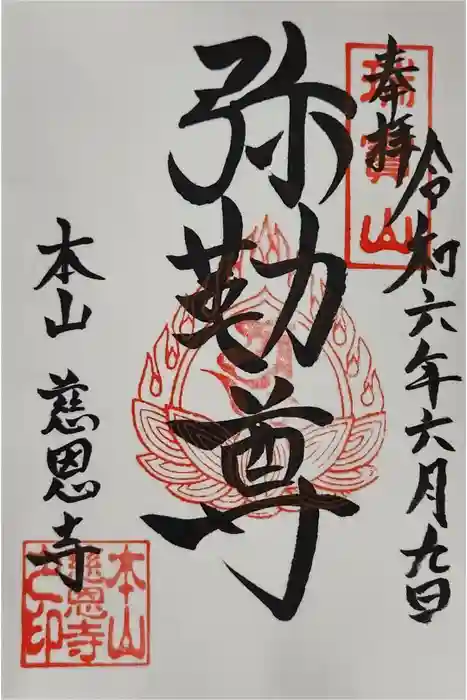 奉拝
令和六年六月九日
瑞寳山
弥勒尊
本山 慈恩寺
本山
慈恩寺
之印